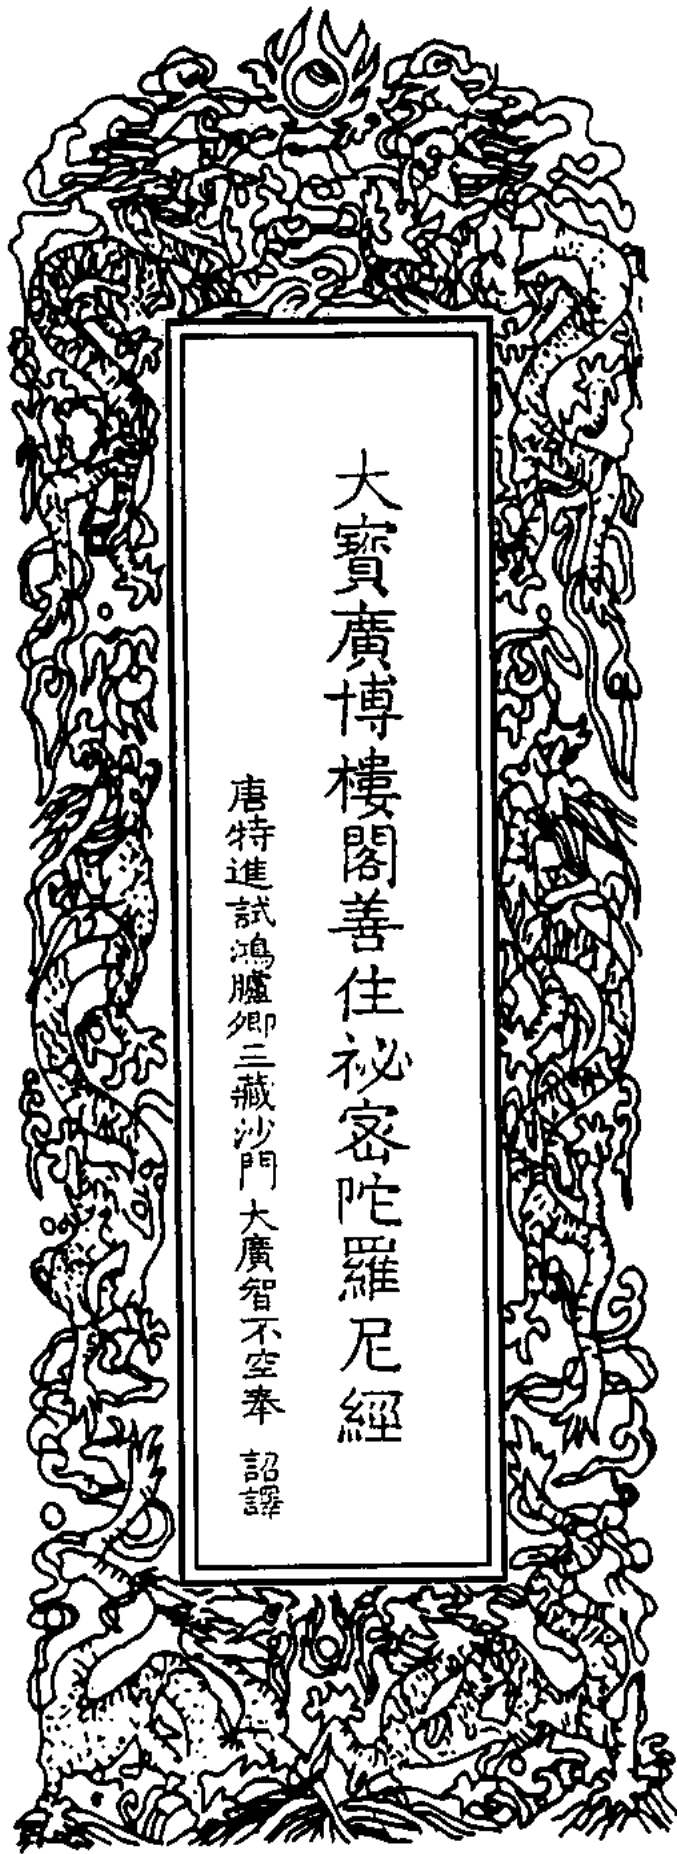 大寶廣博樓閣善住祕密陀羅尼經
唐特進試鴻臚卿三藏沙門大廣智不空奉 詔譯